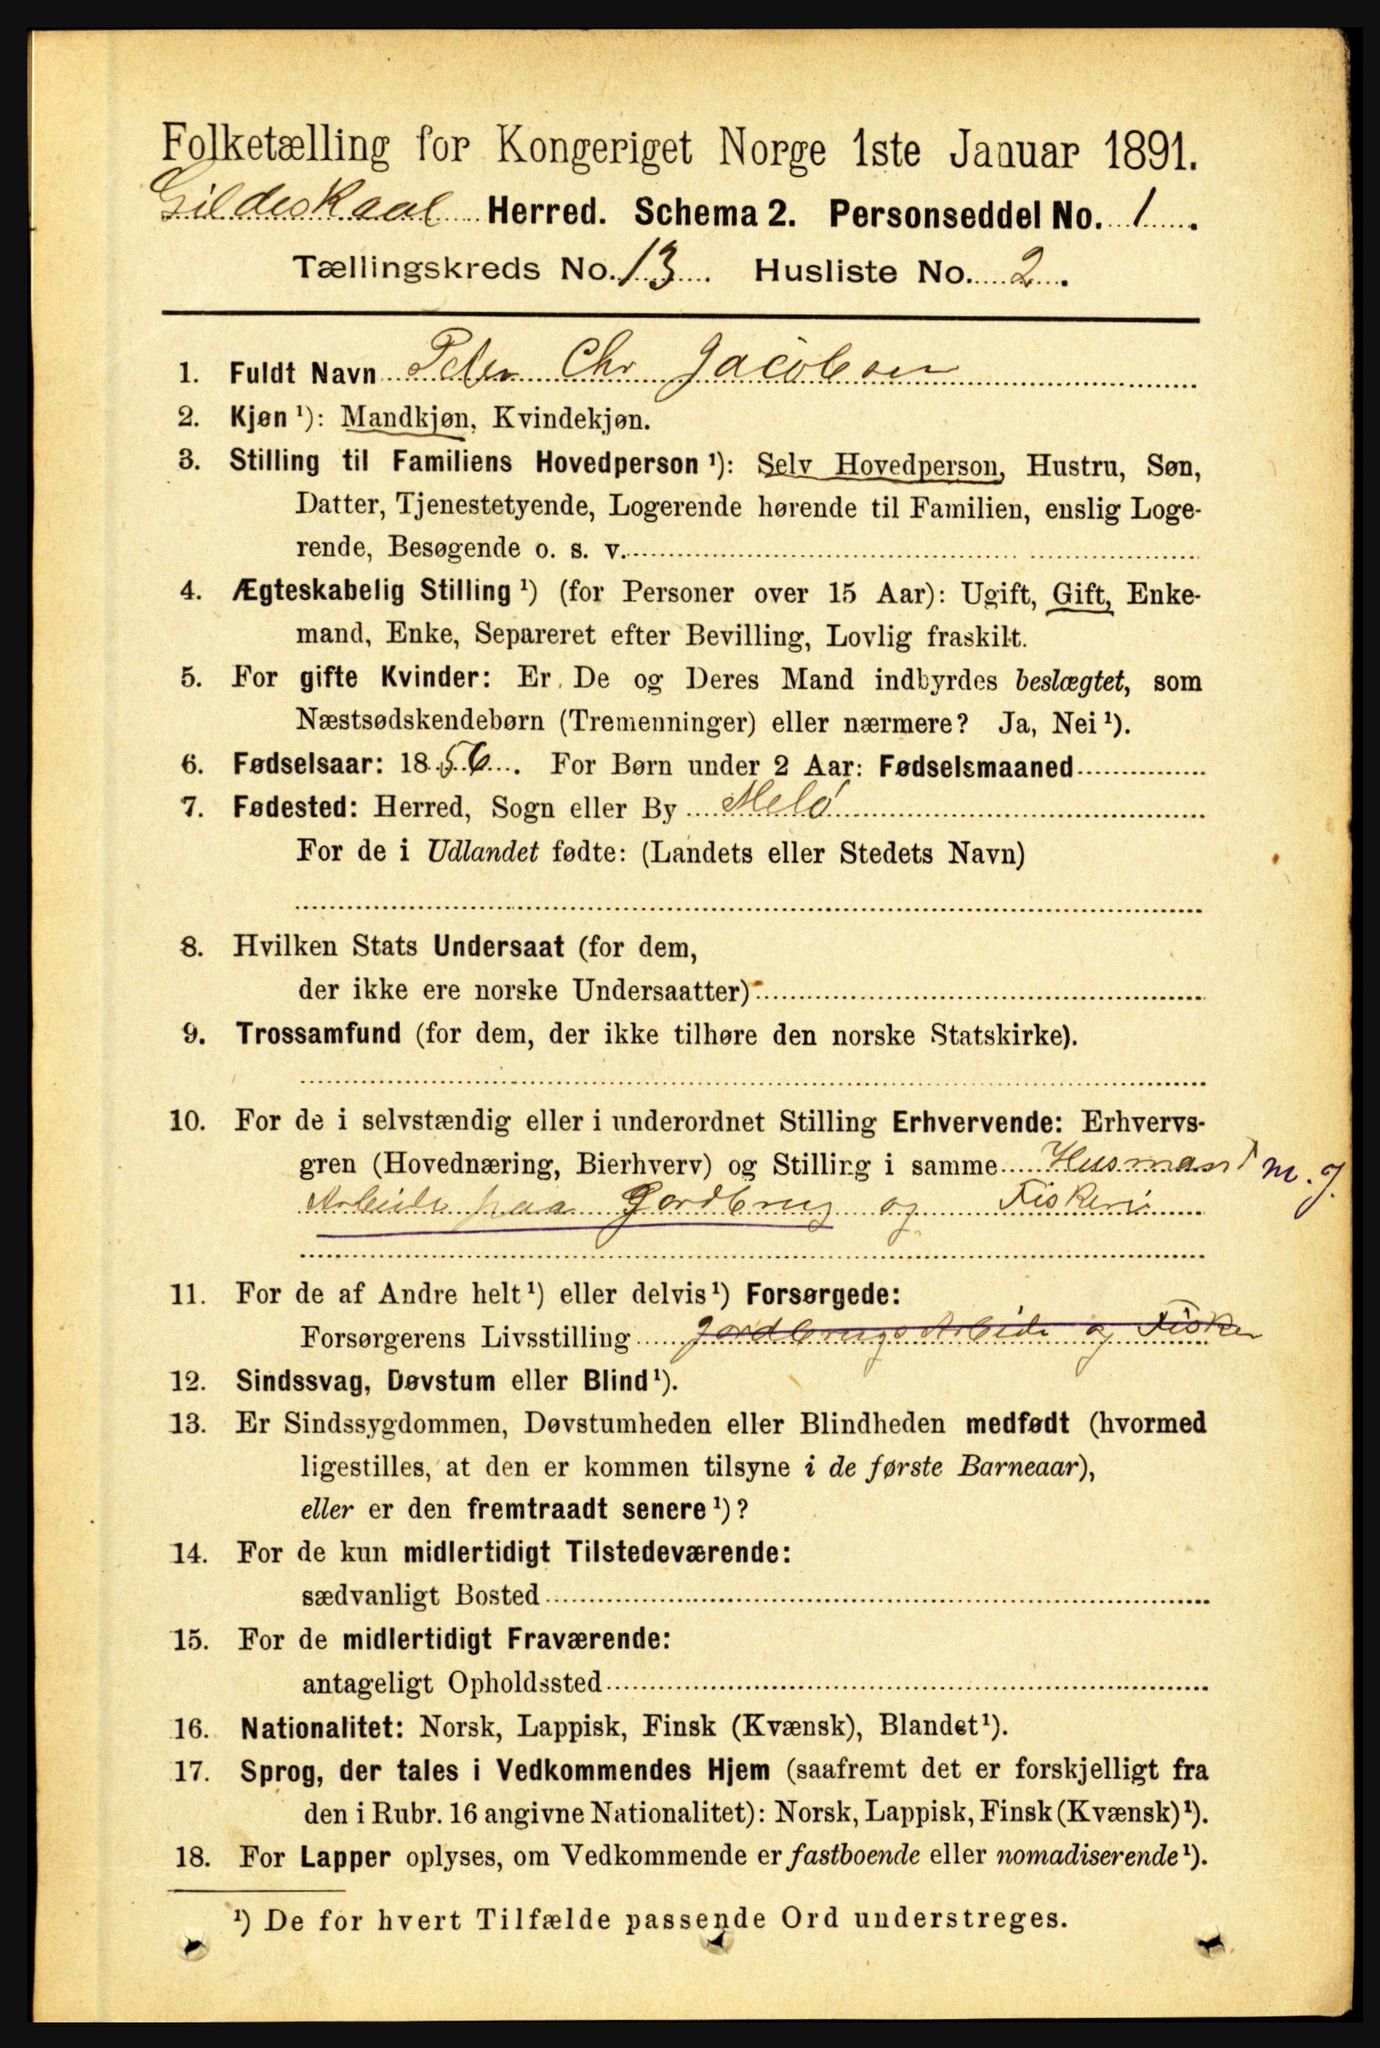 Folketælling for Kongeriget Norge 1ste Januar 1891.
Gildeskaal Herred. Schema 2. Personseddel No. 1.
Tællingskreds No. 13. Husliste No. 2.
1. Fuldt Navn Peder Chr Jacobsen
2. Kjøn ¹): Mandkjøn, Kvindekjøn.
3. Stilling til Familiens Hovedperson ¹): Selv Hovedperson, Hustru, Søn,
Datter, Tjenestetyende, Logerende hørende til Familien, enslig Loge-
rende, Besøgende o. s. v.
4. Ægteskabelig Stilling ¹) (for Personer over 15 Aar): Ugift, Gift, Enke-
mand, Enke, Separeret efter Bevilling, Lovlig fraskilt.
5. For gifte Kvinder: Er De og Deres Mand indbyrdes beslægtet, som
Næstsødskendebørn (Tremenninger) eller nærmere? Ja, Nei ¹).
6. Fødselsaar: 1856. For Børn under 2 Aar: Fødselsmaaned
7. Fødested: Herred, Sogn eller By Melø
For de i Udlandet fødte: (Landets eller Stedets Navn)
8. Hvilken Stats Undersaat (for dem,
der ikke ere norske Undersaatter)
9. Trossamfund (for dem, der ikke tilhøre den norske Statskirke).
10. For de i selvstændig eller i underordnet Stilling Erhvervende: Erhvervs-
gren (Hovednæring, Bierhverv) og Stilling i samme Husmand m. j.
Arbeide paa Jordbrug og Fiskeri
11. For de af Andre helt ¹) eller delvis ¹) Forsørgede:
Forsørgerens Livsstilling Jordbrugs Arbeide og Fisker
12. Sindssvag, Døvstum eller Blind ¹).
13. Er Sindssygdommen, Døvstumheden eller Blindheden medfødt (hvormed
ligestilles, at den er kommen tilsyne i de første Barneaar),
eller er den fremtraadt senere ¹)?
14. For de kun midlertidigt Tilstedeværende:
sædvanligt Bosted
15. For de midlertidigt Fraværende:
antageligt Opholdssted
16. Nationalitet: Norsk, Lappisk, Finsk (Kvænsk), Blandet ¹).
17. Sprog, der tales i Vedkommendes Hjem (saafremt det er forskjelligt fra
den i Rubr. 16 angivne Nationalitet): Norsk, Lappisk, Finsk (Kvænsk) ¹).
18. For Lapper oplyses, om Vedkommende er fastboende eller nomadiserende ¹).
¹) De for hvert Tilfælde passende Ord understreges.